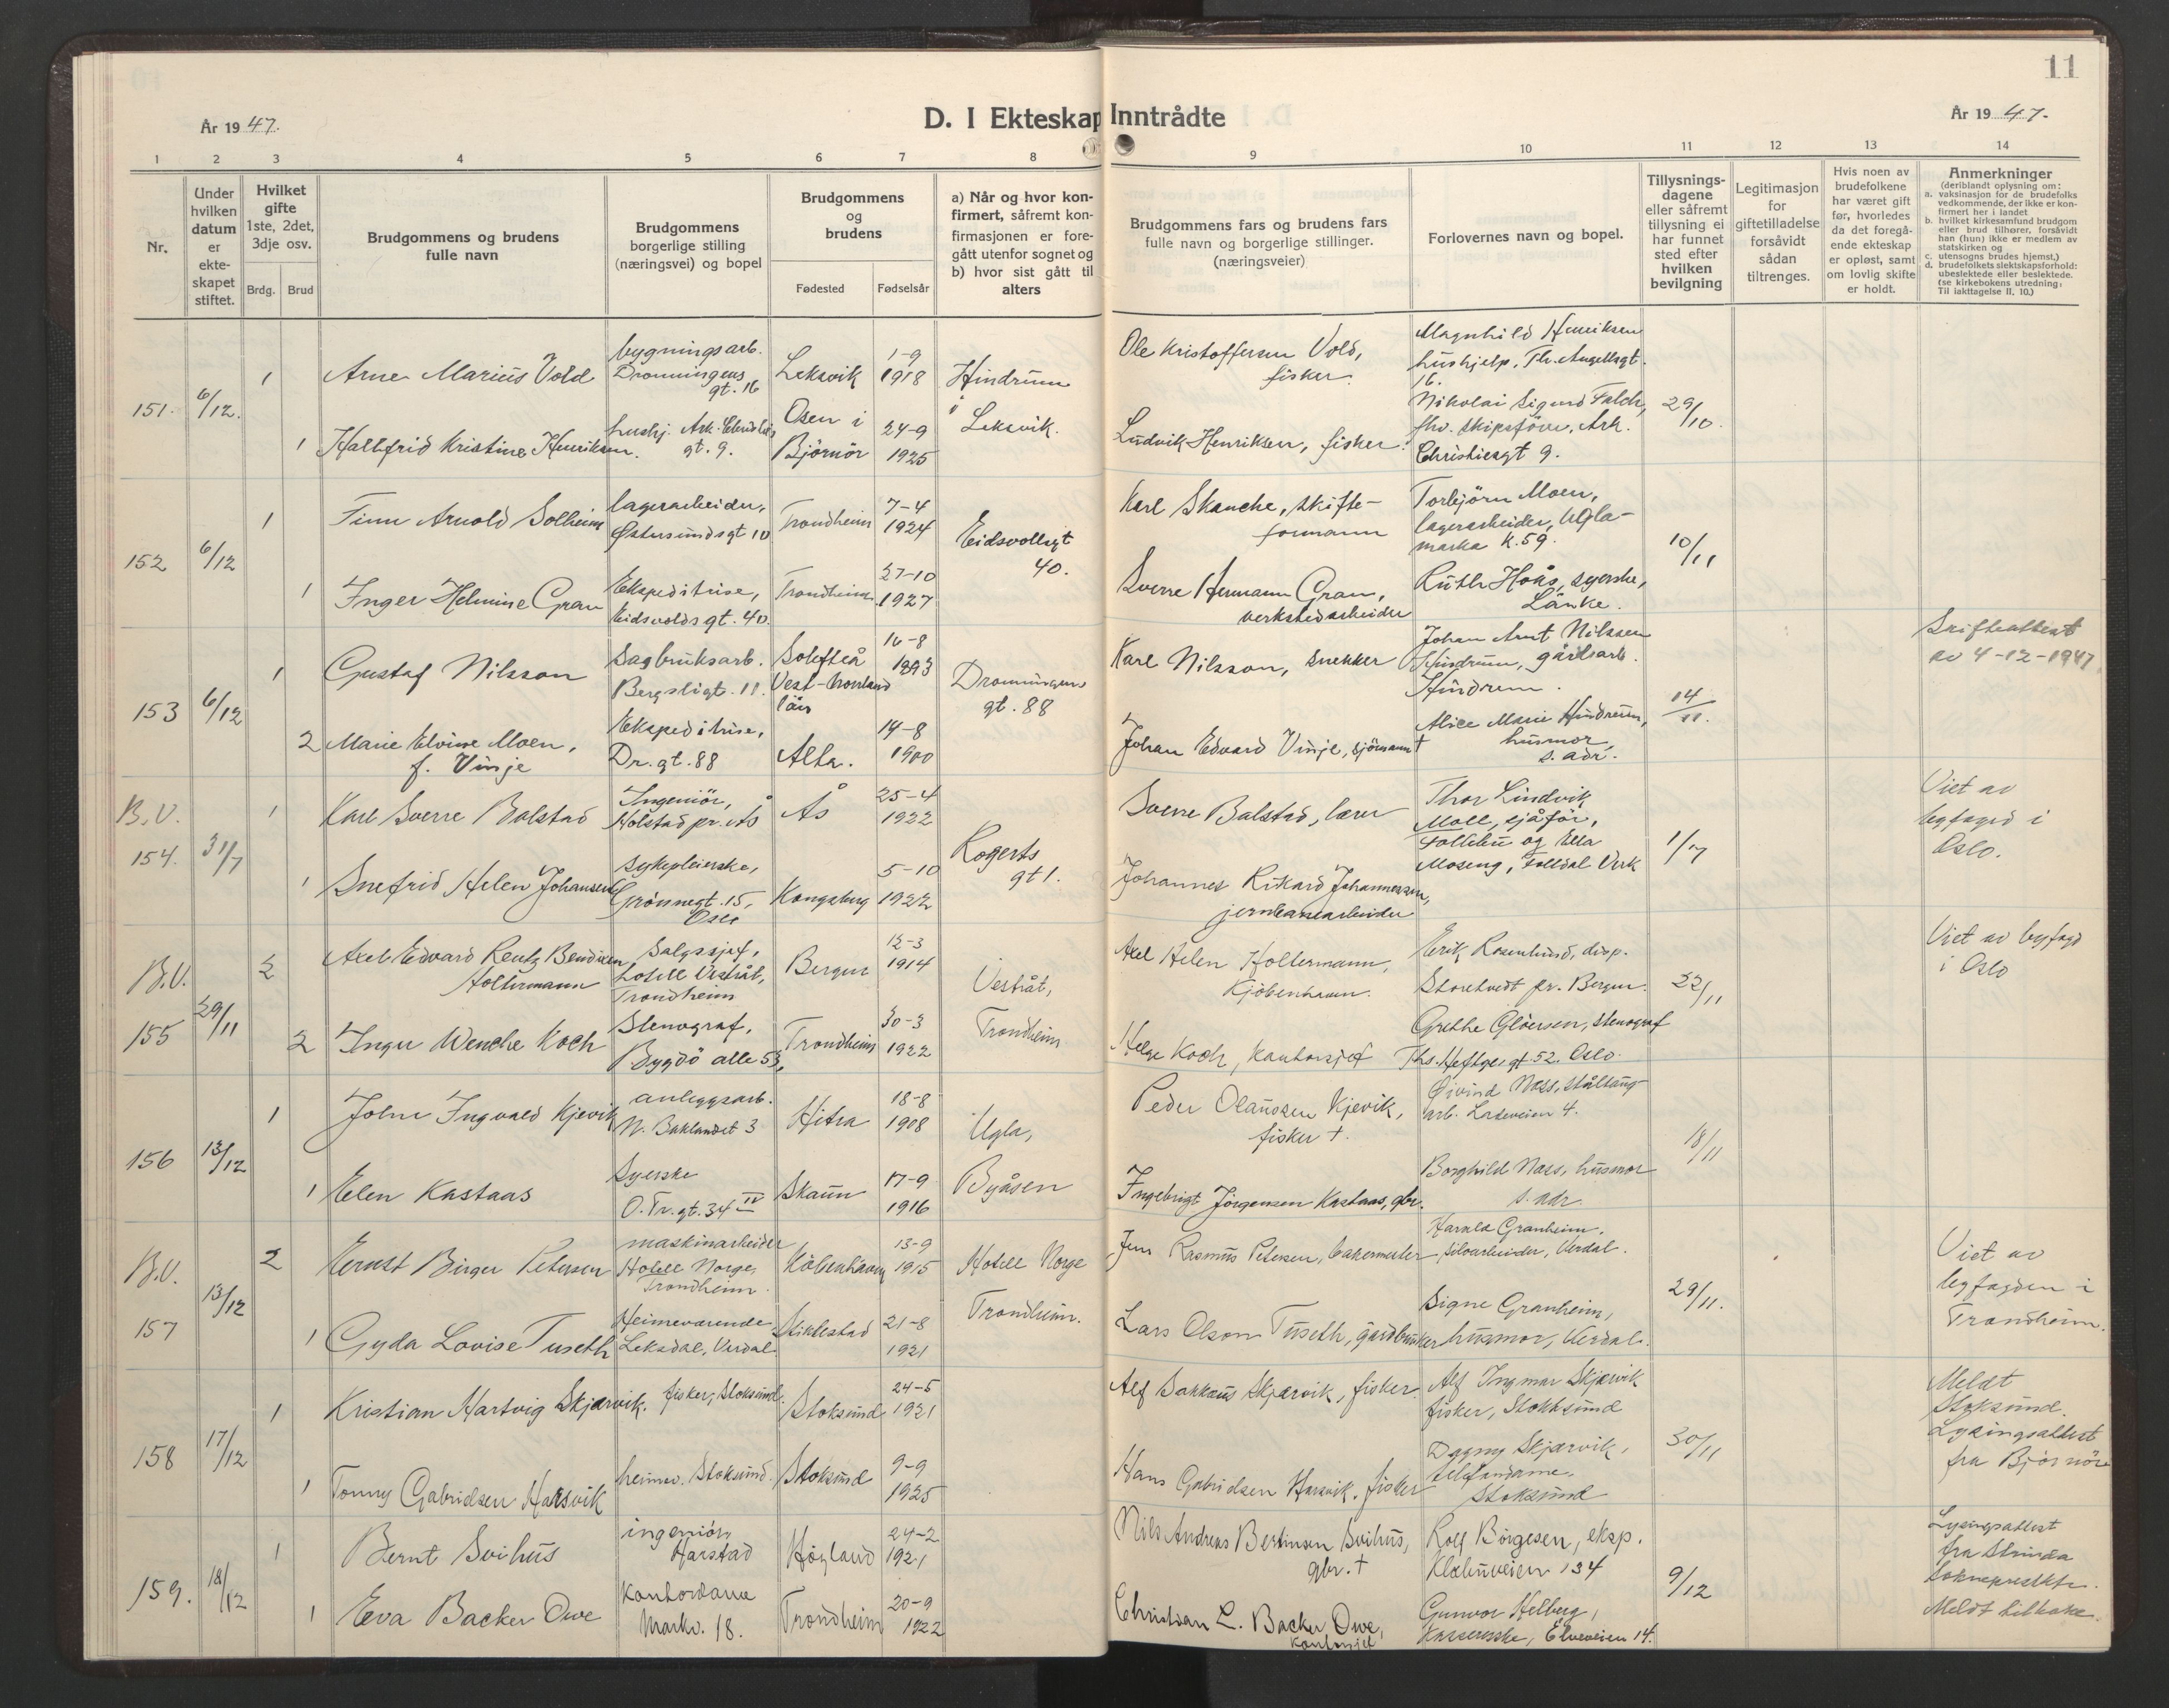 11
År 1947.
D. I Ekteskap Inntrådte
År 1947.
1 2 3 4 5 6 7 8 9 10 11 12 13 14
Nr.
Under
hvilken
datum
er
ekte-
skapet
stiftet.
Hvilket
gifte
1ste, 2det,
3dje osv.
Brdg. Brud
Brudgommens og brudens
fulle navn
Brudgommens
borgerlige stilling
(næringsvei) og bopel
Brudgommens
og
brudens
Fødested Fødselsår
a) Når og hvor kon-
firmert, såfremt kon-
firmasjonen er fore-
gått utenfor sognet og
b) hvor sist gått til
alters
Brudgommens fars og brudens fars
fulle navn og borgerlige stillinger.
(næringsveier)
Forlovernes navn og bopel.
Tillysnings-
dagene
eller såfremt
tillysning ei
har funnet
sted efter
hvilken
bevilgning
Legitimasjon
for
giftetilladelse
forsåvidt
sådan
tiltrenges.
Hvis noen av
brudefolkene
har været gift
før, hvorledes
da det foregå-
ende ekteskap
er opløst, samt
om lovlig skifte
er holdt.
Anmerkninger
(deriblandt oplysning om:
a. vaksinasjon for de brudefolks
vedkommende, der ikke er kon-
firmert her i landet
b. hvilket kirkesamfund brudgom
eller brud tilhører, forsåvidt
han (hun) ikke er medlem av
statskirken og
c. utensogns brudes hjemst.)
d. brudefolkets slektskapsforhold:
ubeslektede eller beslektede.
(se kirkebokens utredning:
Til iakttagelse II. 10.)
151. 6/12.
1 Arne Marius Vold
bygningsarb.
Dronningens
gt. 16
Leksvik
1-9
1918
Hindrum
i
Leksvik.
Ole Kristoffersen Vold,
fisker.
Magnhild Henriksen
hushjelp, Th. Angellsgt.
16.
1 Hallfrid Kristine Henriksen.
hushj. Ark.
gt. 9.
Osen i
Björnör
24-9
1925
Ludvik Henriksen, fisker.
Nikolai Sigurd Falch,
fhv. skipsförer, Ark.
Christiesgt 9.
29/10.
152 6/12
1 Finn Arnold Solheim
lagerarbeider,
Østersundsgt 10
Trondheim
7-4
1924
Eidsvollsgt
40.
Karl Skanche, skifte-
formann
Torbjörn Moen,
lagerarbeider, Ugla-
marka K. 59.
10/11
1 Inger Helmine Gran
Ekspeditrise,
Eidsvolds gt. 40.
Trondheim
27-10
1927
Sverre Hermann Gran,
verkstedarbeider
Ruth Hoås, syerske,
Lånke.
153 6/12
1 Gustaf Nilsson
Sagbruksarb.
Bergsligt. 11.
Solefteå
Vest-norrland
län
16-8
1893
Dronningens
gt. 88
Karl Nilsson, snekker
Johan Arnt Nilssen
Hindrum, gårdsarb.
Hindrem.
14/11.
Skifteattest
av 4-12-1947
2 Marie Elvine Moen,
f. Vinje
Ekspeditrise,
Dr. gt. 88
Alta.
14-8
1900
Johan Edvard Vinje, sjömann †
Alice Marie Hindrum,
husmor,
s. adr.
B.V.
154. 31/7
1 Karl Sverre Balstad
Ingeniör,
Holstad pr. Ås
Ås
25-4
1922
Rogerts
gt 1.
Sverre Balstad, lærer
Thor Lindvik
Moll, sjåför,
Follebu og Ella
Moseng, Folldal Verk
1/7
Viet av
byfogd i
Oslo.
1 Snefrid Helen Johansen
Sykepleierske,
Grönnegt. 15,
Oslo
Kongsberg
5-10
1922
Johannes Rikard Johannessen,
jernbanearbeider
B.V.
155 29/11
2 Axel Edvard Rentz Bendixen
Holtermann
Salgssjef,
Hotell Vestråt,
Trondheim
Bergen
12-3
1914
Vestråt,
Trondheim
Axel Helen Holtermann,
Kjöbenhavn.
Erik Rosenlund, disp.
Storetvedt pr. Bergen.
22/11
Viet av byfogd
i Oslo
2 Inger Wenche Koch
Stenograf,
Bygdö alle 53,
Trondheim
30-3
1922
Helge Koch, kontorsjef
Grethe Glörsen, stenograf
Ths. Heftyes gt. 52. Oslo.
156 13/12
1 John Ingvald Kjevik
anleggsarb.
N. Baklandet 3
Hitra
18-8
1908
Ugla,
Byåsen
Peder Olaussen Kjevik,
fisker †.
Öivind Næss, ståltaug-
arb. Ladeveien 4.
18/11
1 Elen Kastaas
Syerske
O. Tr. gt. 34 IV
Skaun
17-9
1916
Ingebrigt Jörgensen Kastaas, gbr.
Borghild Næss, husmor
s. adr.
B.V.
157 13/12
2 Ernst Birger Petersen
maskinarbeider
Hotell Norge,
Trondheim.
Köbenhavn
13-9
1915
Hotell Norge
Trondheim.
Jens Rasmus Petersen, bakermester
Harald Granheim,
siloarbeider, Verdal.
29/11.
Viet av
byfogden i
Trondheim.
1 Gyda Lovise Tuseth
Heimeværende
Leksdal, Verdal
Stiklestad
21-8
1921
Lars Olson Tuseth, gårdbruker
Signe Granheim,
husmor, Verdal.
158 17/12
1 Kristian Hartvig Skjærvik.
fisker, Stoksund.
Stoksund
24-5
1921
Alf Sakkaus Skjærvik, fisker.
Alf Ingmar Skjærvik
fisker, Stokksund
30/11
Meldt
Stoksund.
Lysingsattest
fra Björnör
1 Tonny Gabridsen Harsvik
heimev. Stoksund.
Stoksund
9-9
1925
Hans Gabridsen Harsvik, fisker
Dagny Skjærvik,
telefondame,
Stoksund
159. 18/12
1 Bernt Svihus
ingeniör,
Harstad
Högland
24-2
1921
Nils Andreas Bertinsen Svihus,
gbr. †
Rolf Börgesen, eksp.
Klæbuveien 134
9/12
Lysingsattest
fra Strinda
sokneprestkt.
Meldt tilbake.
1 Eva Backer Owe
Kontordame
Markv. 18.
Trondheim
20-9
1922
Christian L. Backer Owe,
kontorsjef
Gunvor Helberg,
Kassererske, Elveveien 14.